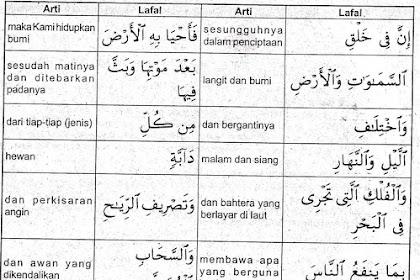 Arti Lafal Arti Lafal
maka Kami hidupkan bumi فَأَحْيَا بِهِ ٱلْأَرْضَ sesungguhnya dalam penciptaan إِنَّ فِى خَلْقِ
sesudah matinya dan ditebarkan padanya بَعْدَ مَوْتِهَا وَبَثَّ فِيهَا langit dan bumi ٱلسَّمَٰوَٰتِ وَٱلْأَرْضِ
dari tiap-tiap (jenis) مِن كُلِّ dan bergantinya وَٱخْتِلَٰفِ
hewan دَآبَّةٍ malam dan siang ٱلَّيْلِ وَٱلنَّهَارِ
dan perkisaran angin وَتَصْرِيفِ ٱلرِّيَٰحِ dan bahtera yang berlayar di laut وَٱلْفُلْكِ ٱلَّتِى تَجْرِى فِى ٱلْبَحْرِ
dan awan yang dikendalikan وَٱلسَّحَابِ membawa apa yang berguna بِمَا يَنفَعُ ٱلنَّاسَ